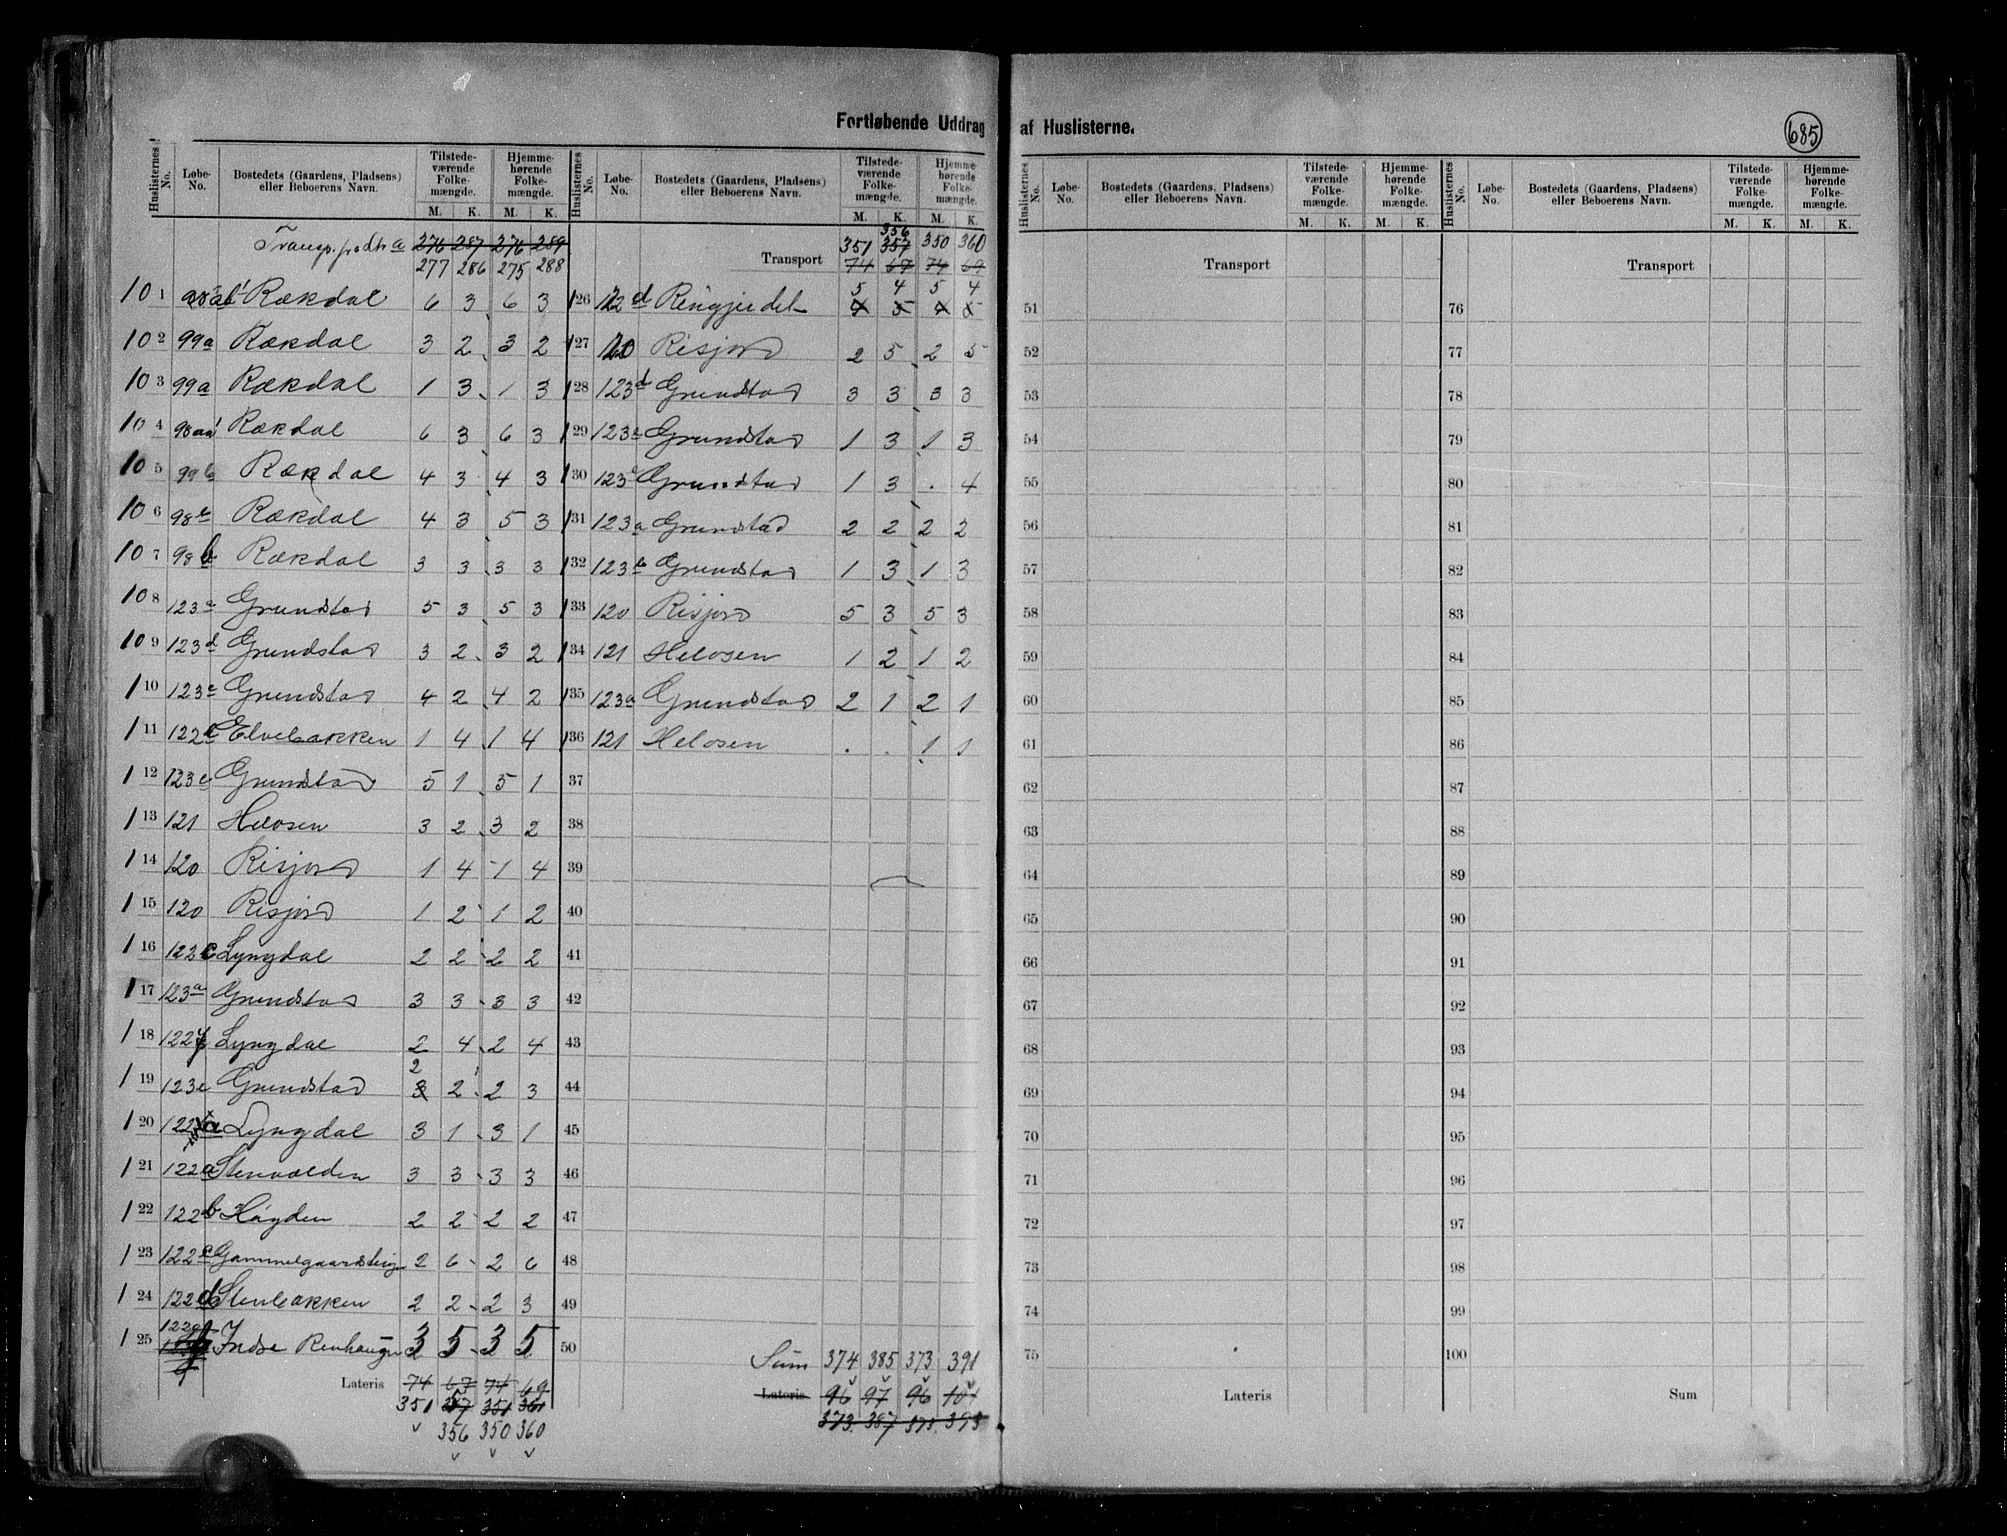 Fortløbende Uddrag af Huslisterne.
685
Huslisternes No. | Løbe-No. | Bostedets (Gaardens, Pladsens) eller Beboerens Navn. | Tilstede-værende Folke-mængde. M. K. | Hjemme-hørende Folke-mængde. M. K.
276 287 276 289
277 286 275 288
101 Rækdal 6 3 6 3
102 99a Rækdal 3 2 3 2
103 99a Rækdal 1 3 1 3
104 98aa1 Rækdal 6 3 6 3
105 99b Rækdal 4 3 4 3
106 98c Rækdal 4 3 5 3
107 98b Rækdal 3 3 3 3
108 123a Grundstad 5 3 5 3
109 123d Grundstad 3 2 3 2
110 123e Grundstad 4 2 4 2
111 122 Elvebakken 1 4 1 4
112 123c Grundstad 5 1 5 1
113 121 Helosen 3 2 3 2
114 120 Risjord 1 4 1 4
115 120 Risjord 1 2 1 2
116 122c Lyngdal 2 2 2 2
117 123a Grundstad 3 3 3 3
118 122 Lyngdal 2 4 2 4
2
119 123c Grundstad 3 2 2 3
120 122a Lyngdal 3 1 3 1
121 122a Stenvolden 3 3 3 3
122 122b Høgden 2 2 2 2
123 122c 2 6 2 6
124 122d Stenbakken 2 2 2 3
125 Indre Renhaugen 3 5 3 5
Lateris 74 67 74 69
351 357 351 361
356 350 360
Huslisternes No. | Løbe-No. | Bostedets (Gaardens, Pladsens) eller Beboerens Navn. | Tilstede-værende Folke-mængde. M. K. | Hjemme-hørende Folke-mængde. M. K.
356
351 357 350 360
Transport 74 67 74 69
5 4 5 4
126 122d Ringjerdet 4 5 4 5
127 120 Risjord 2 5 2 5
128 123d Grundstad 3 3 3 3
129 123 Grundstad 1 3 1 3
130 123 Grundstad 1 3 . 4
131 123a Grundstad 2 2 2 2
132 123 Grundstad 1 3 1 3
133 120 Risjord 5 3 5 3
134 121 Helosen 1 2 1 2
135 123a Grundstad 2 1 2 1
136 121 Helosen . . 1 1
37
38
39
40
41
42
43
44
45
46
47
48
49
50
Sum 374 385 373 391
Lateris 96 97 96 101
373 387 373 393
Huslisternes No. | Løbe-No. | Bostedets (Gaardens, Pladsens) eller Beboerens Navn. | Tilstede-værende Folke-mængde. M. K. | Hjemme-hørende Folke-mængde. M. K.
Transport
51
52
53
54
55
56
57
58
59
60
61
62
63
64
65
66
67
68
69
70
71
72
73
74
75
Lateris
Huslisternes No. | Løbe-No. | Bostedets (Gaardens, Pladsens) eller Beboerens Navn. | Tilstede-værende Folke-mængde. M. K. | Hjemme-hørende Folke-mængde. M. K.
Transport
76
77
78
79
80
81
82
83
84
85
86
87
88
89
90
91
92
93
94
95
96
97
98
99
100
Sum